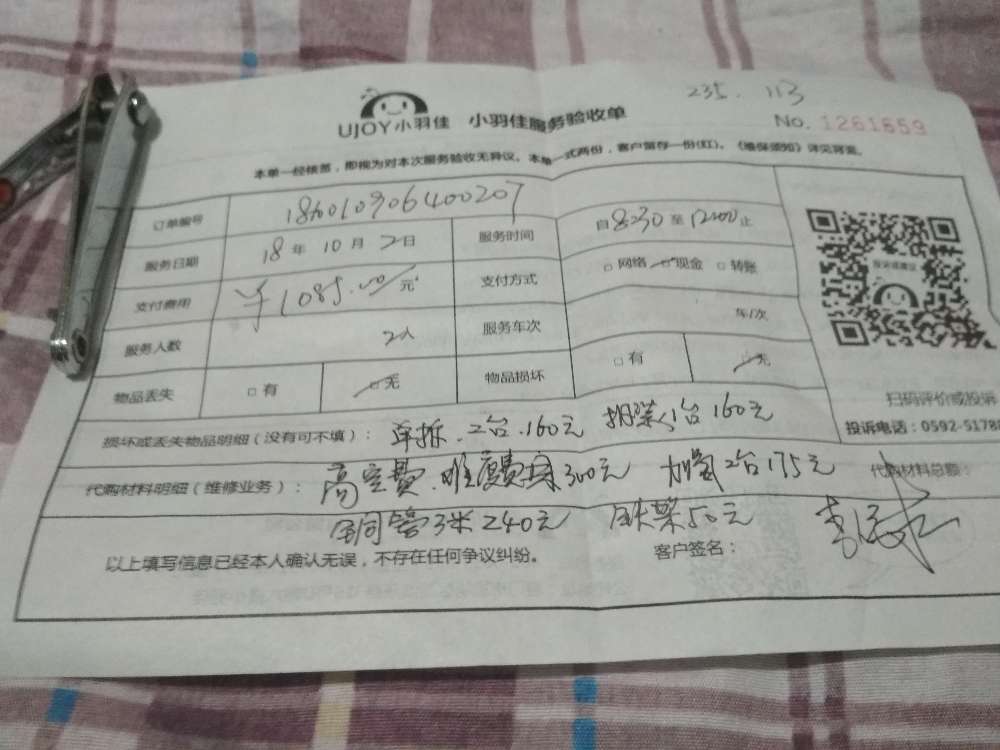 235. 113
UJOY小羽佳 小羽佳服务验收单
No. 1261659
本单一经核签，即视为对本次服务验收无异议。本单一式两份，客户留存一份(红)。《维保须知》详见背面。
订单编号 186010906400207
服务日期 18年10月2日 服务时间 自8:30至12:00止
支付费用 ￥1085.00/元 支付方式 □网络 □现金 □转账
服务人数 2人 服务车次 车/次
物品丢失 □有 □无 物品损坏 □有 □无
扫码评价或投诉
投诉电话：0592-51788
损坏或丢失物品明细（没有可不填）： 单拆.2台.160元 1台160元
代购材料明细（维修业务）： 高空费.难度费 300元 加氟2台175元 代购材料总额：
铜管3米240元 铁架50元
以上填写信息已经本人确认无误，不存在任何争议纠纷。 客户签名：